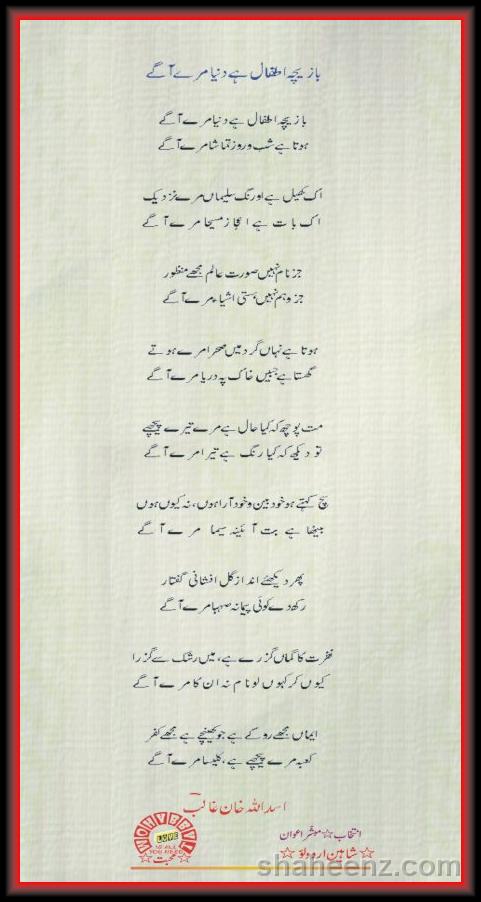 بازیچہ اطفال ہے دنیا مرے آگے
بازیچہ اطفال ہے دنیا مرے آگے
ہوتا ہے شب و روز تماشا مرے آگے
اک کھیل ہے اورنگ سلیماں مرے نزدیک
اک بات ہے اعجاز مسیحا مرے آگے
جز نام نہیں صورت عالم مجھے منظور
جز وہم نہیں ہستی اشیاء مرے آگے
ہوتا ہے نہاں گرد میں صحرا مرے ہوتے
گھستا ہے جبیں خاک پہ دریا مرے آگے
مت پوچھ کہ کیا حال ہے مرے تیرے پیچھے
تو دیکھ کہ کیا رنگ ہے تیرا مرے آگے
سچ کہتے ہو خود بین و خود آرا ہوں، نہ کیوں ہوں
بیٹھا ہے بت آئینہ سیما مرے آگے
پھر دیکھئے انداز گل افشانی گفتار
رکھ دے کوئی پیمانہ صہبا مرے آگے
نفرت کا گماں گزرے ہے، میں رشک سے گزرا
کیوں کر کہوں لو نام نہ ان کا مرے آگے
ایماں مجھے روکے ہے جو کھینچے ہے مجھے کفر
کعبہ مرے پیچھے ہے، کلیسا مرے آگے
اسد اللہ خان غالب
انتخاب ☆ مبشر اعوان
☆ شاہین اردو لو ☆
LOVE
IS ALL
YOU NEED
☆ محبت ☆
shaheenz.com